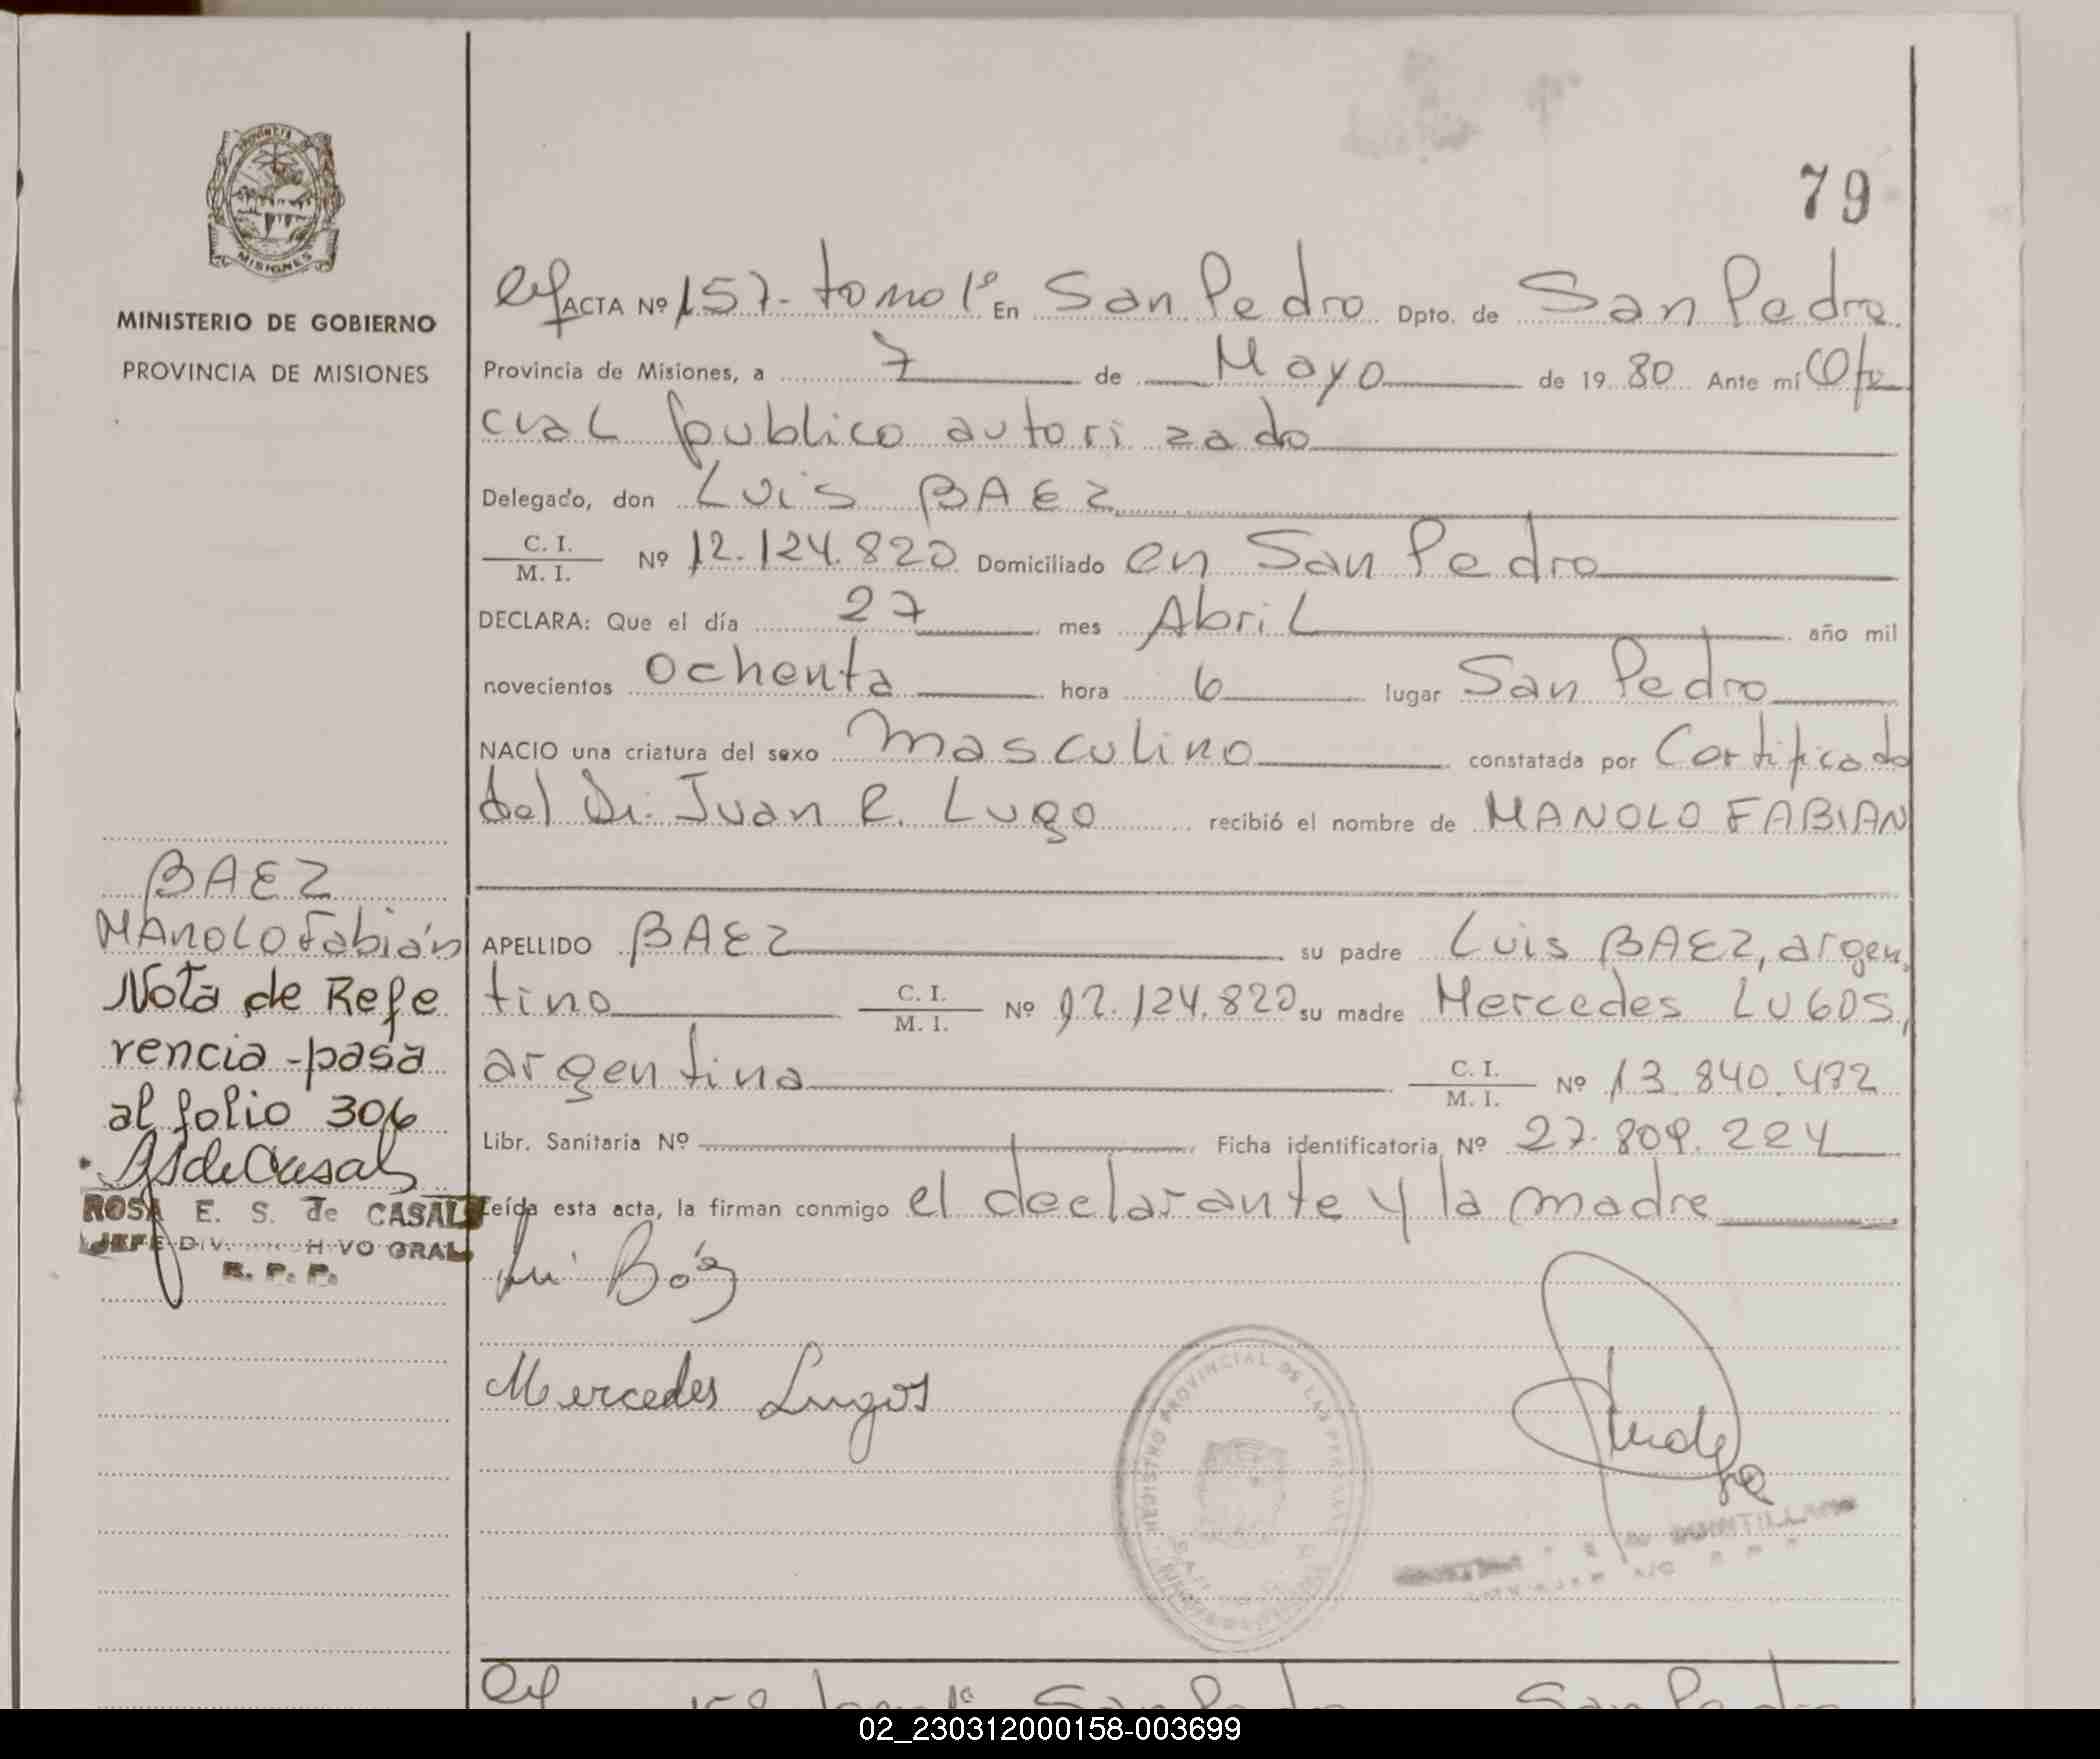 79
PROVINCIA DE
MISIONES
MINISTERIO DE GOBIERNO
PROVINCIA DE MISIONES
ACTA Nº 157- tomo 1º En San Pedro Dpto. de San Pedro
Provincia de Misiones, a 7 de Mayo de 19 80 Ante mí Ofi
cial publico autorizado
Delegado, don Luis BAEZ
C. I. / M. I. Nº 12.124.820 Domiciliado en San Pedro
DECLARA: Que el día 27 mes Abril año mil
novecientos ochenta hora 6 lugar San Pedro
NACIO una criatura del sexo masculino constatada por Certificado
del Dr. Juan R. Lugo recibió el nombre de MANOLO FABIAN
APELLIDO BAEZ su padre Luis BAEZ, argen
tino C. I. / M. I. Nº 12.124.820 su madre Mercedes LUGOS,
argentina C. I. / M. I. Nº 13.840.472
Libr. Sanitaria Nº Ficha identificatoria Nº 27.809.224
Leída esta acta, la firman conmigo el declarante y la madre
BAEZ
MANOLO Fabián
Nota de Refe
rencia - pasa
al folio 306
ROSA E. S. de CASALS
JEFE DIV. ARCHIVO GRAL
R. P. P.
Mercedes Lugos
REGISTRO PROVINCIAL DE LAS PERSONAS
San Pedro San Pedro
02_230312000158-003699